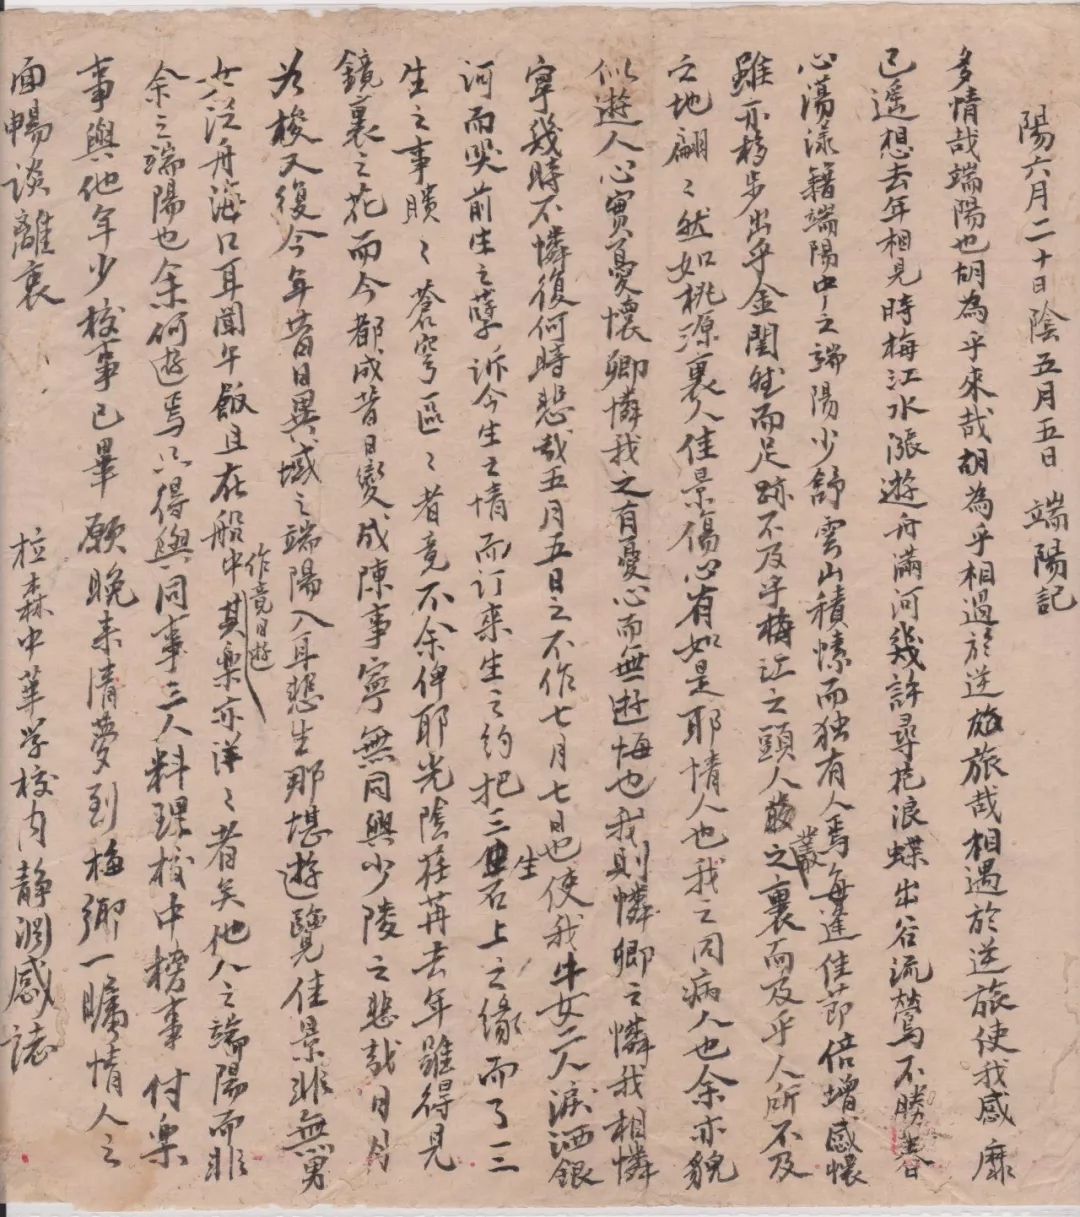 陽六月二十日陰五月五日 端陽記
多情哉端陽也胡為乎來哉胡為乎相過於逆旅哉相遇於逆旅使我感靡
已遥想去年相見時梅江水漲遊舟滿河幾許尋花浪蝶出谷流鶯不勝春
心蕩漾籍端陽中之端陽少舒雲山積愫而独有人焉每逢佳節倍增感懷
雖亦移步出乎金閨然而足跡不及乎梅江之頭人叢之裏而及乎人所不及
之地翩〻然如桃源裏人佳景傷心有如是耶情人也我之同病人也余亦貌
似遊人心實憂懷卿憐我之有憂心而無遊悔也我則憐卿之憐我相憐
寧幾時不憐復何時悲哉五月五日之不作七月七日也使我牛女二人淚洒銀
河而哭前生之孽訴今生之情而订來生之約把三生石上之緣而了三
生之事瞆〻蒼穹區〻者竟不余俾耶光陰荏苒去年雖得見
鏡裏之花而今都成昔日變成陳事寧無同興少陵之悲哉日月
為梭又復今年昔日異域之端陽入耳愁生那堪遊覽佳景非無男
女泛舟海口耳聞午飯且在船中作竟日遊其樂亦洋〻者矣他人之端陽而非
余之端陽也余何遊焉只得與同事三人料理校中榜事付樂
事與他年少校事已畢願晚來清夢到梅鄉一矚情人之
面暢談離衷
拉森中華学校内静淵感誌